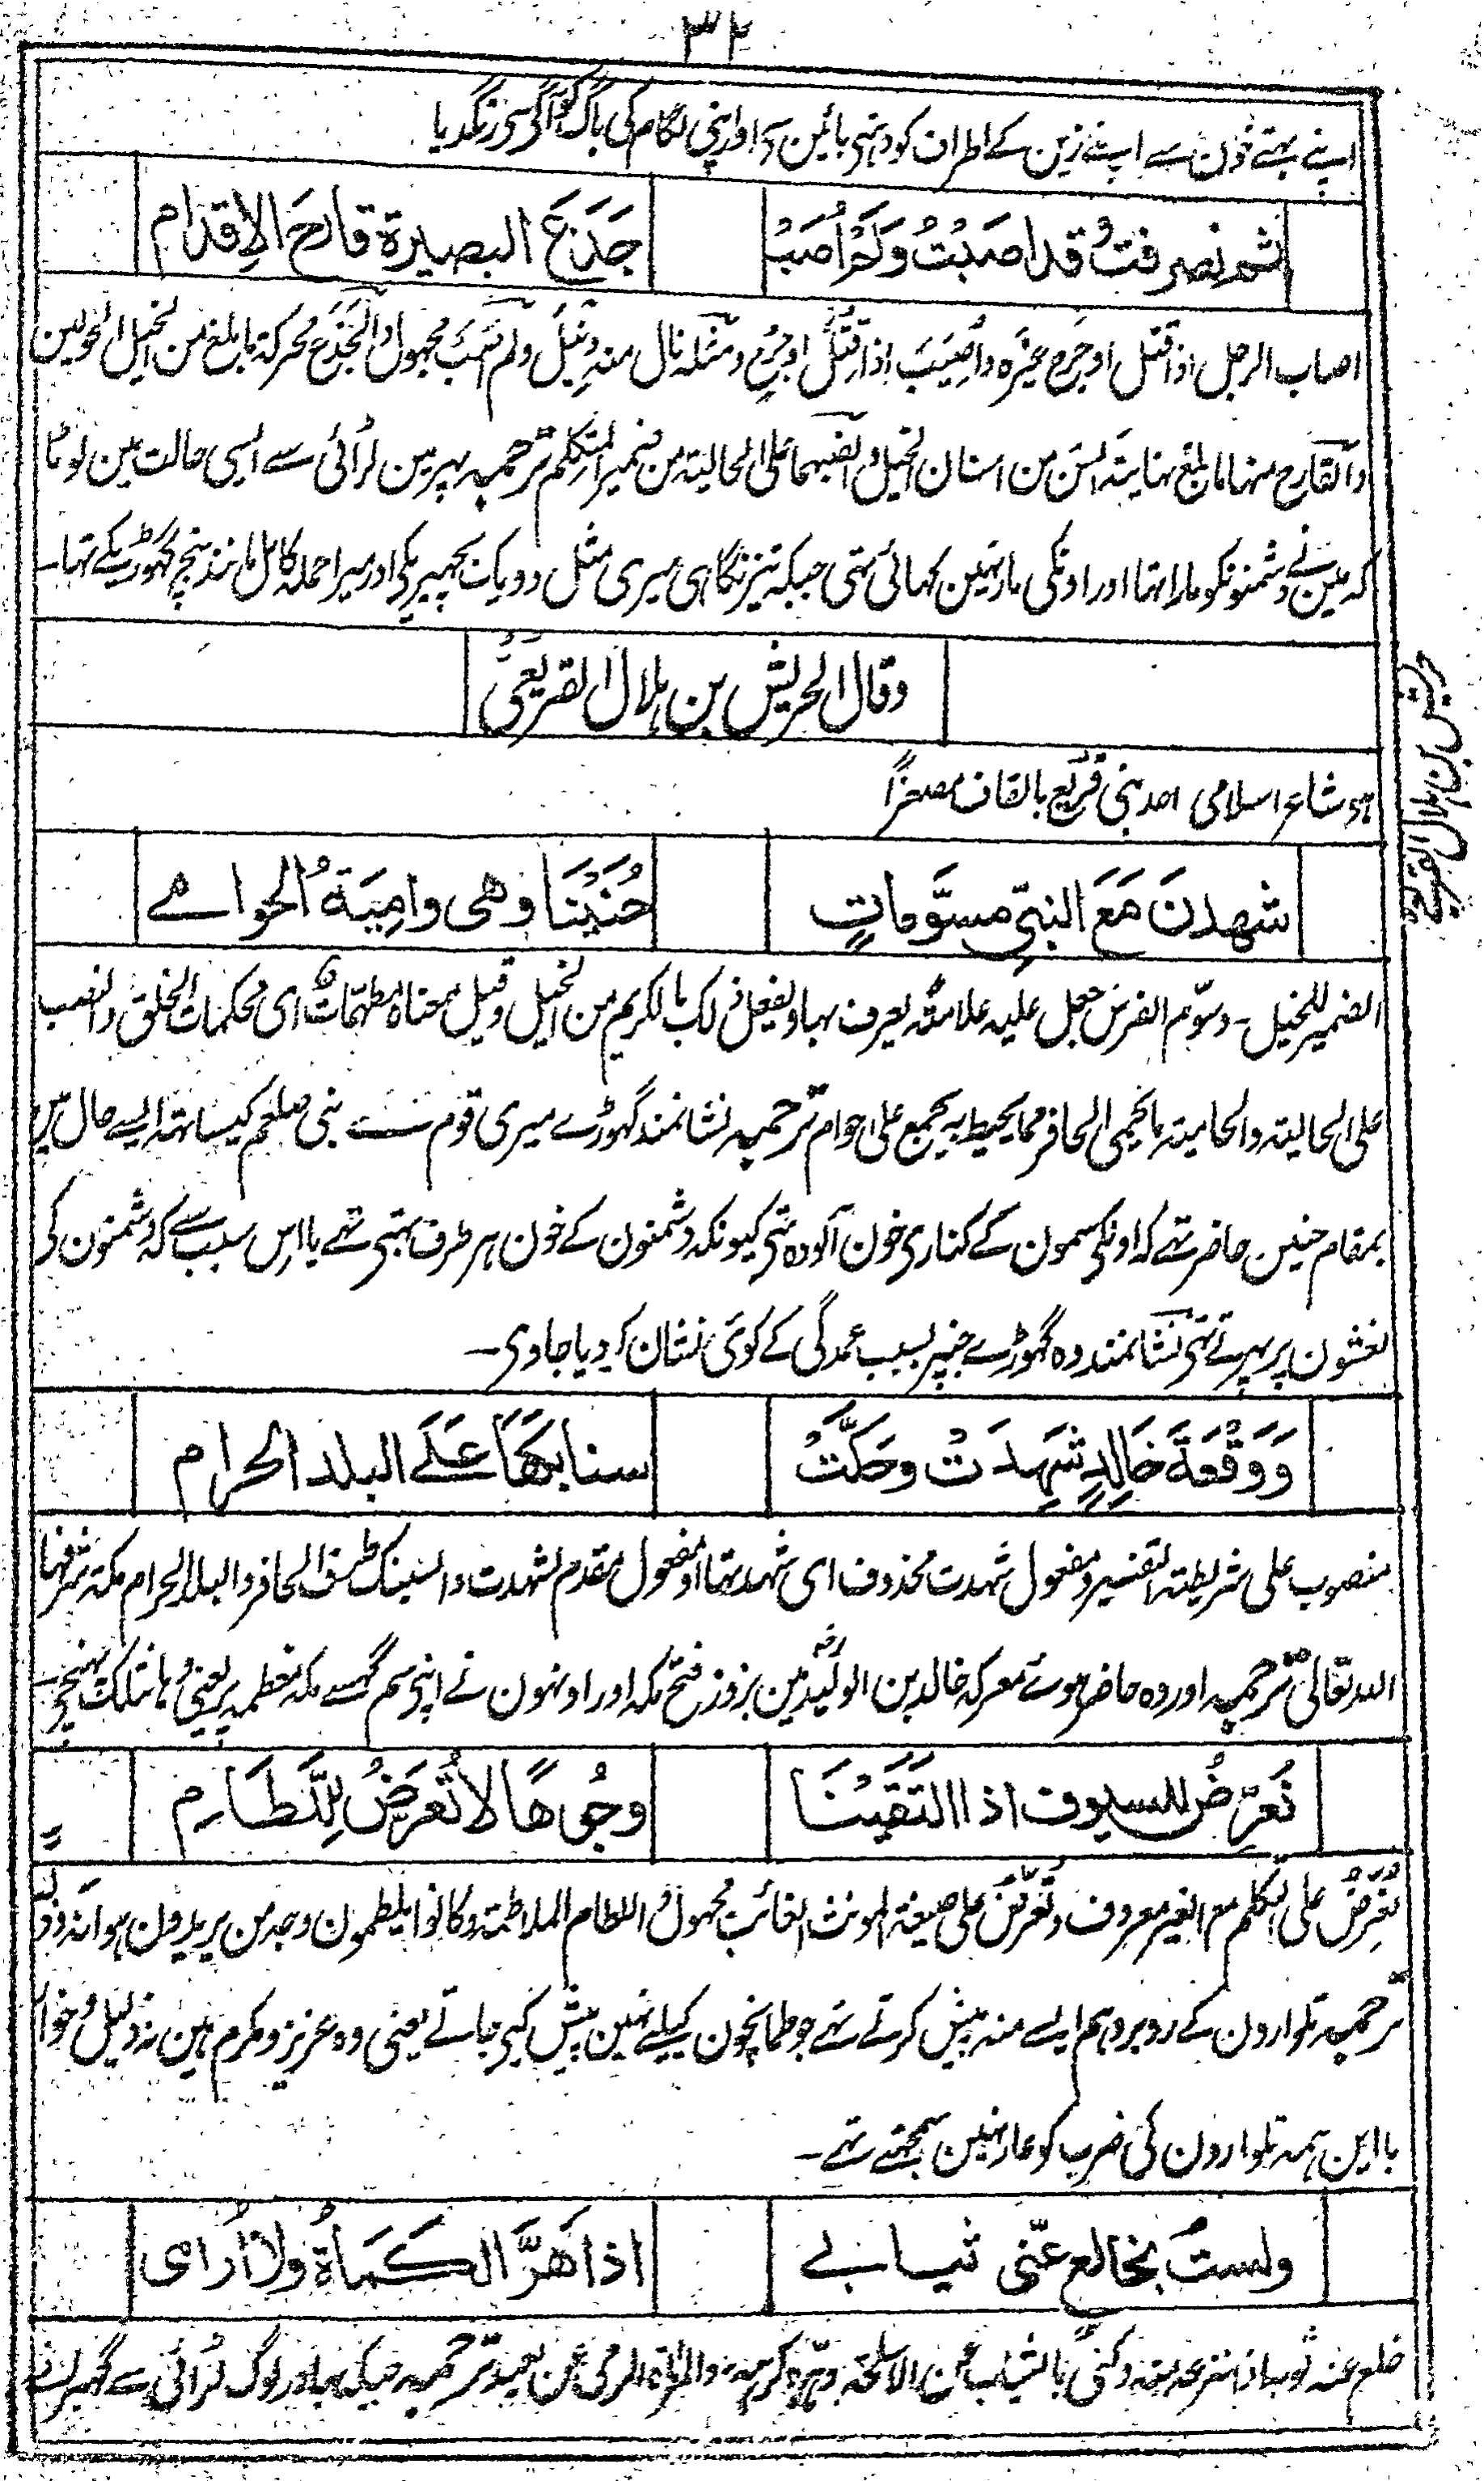 ۳۲
اپنے بہتے خون سے اپنے زین کے اطراف کو دہنی بائین سے اور اپنی لگام کی باگ کو آگی سی رنگدیا
ثم نصرفتُ قد اصَبْتُ وَلَمْ اُصَبْ
جَذَعَ البصیرة قارحَ الاِقدام
اصاب الرجل اذا قتل او جرح غیرَہ واُصِیبَ اذا قُتِلَ او جُرِحَ ومثلہ نال منہ ونِیلَ ولم اُصَبْ مجہول والجَذَع محرکۃ ما بلغ من الخیل الحولین
والقارح منہا ما بلغ نہایتہ السن من اسنان الخیل ونصبہما علی الحالیتہ من ضمیر المتکلم ترجمہ پہر مین لڑائی سے ایسی حالت مین لوٹا
کہ مین نے دشمنونکو مارا تہا اور اونکی مار نہین کہائی تہی جبکہ تیز نگاہی میری مثل دویک بچہیریکی اور میرا حملہ کامل مانند پنج گہوڑیکے تہا۔
وقال الحریش بن ہلال القریعیّ
ہو شاعر اسلامی احد بنی قُرَیع بالقاف مصغرًا
شھدنَ مَعَ النبیِّ مسوَّماتٍ
حُنَیْنًا وھی دامِیَةُ الحوامے
الضمیر للخیل۔ وسوّم الفرسَ جعل علیہ علامتہً یعرف بہا ویفعل ذلک بالکریم من الخیل وقیل معناہ مطہمات ای محکمات الخلق والنصب
علی الحالیتہ والحامیتہ ما یحمی الحافر مما یحیط بہ یجمع علی حوام ترجمہ نشانمند گہوڑے میری قوم کے نبی صلعم کیساتہہ ایسے حال مین
بمقام حنین حاضر تہے کہ اونکی سمون کے کناری خون آلودہ تہی کیونکہ دشمنون کے خون ہر طرف بہتی تہے یا اس سبب سے کہ دشمنون کی
نعشون پر پہرتے تہی نشانمند وہ گہوڑے جنپر بسبب عمدگی کے کوئی نشان کر دیا جاوی۔
وَوَقْعَةَ خَالِدٍ شَهِدَتْ وحَكَّتْ
سنابكَھَا عَلَے البلد الحرام
منصوب علی شریطتہ التفسیر ومفعول شہدت محذوف ای شہدتہا او مفعول مقدم لشہدت والسنبک طرف الحافر والبلد الحرام مکۃ شرفہا
اللہ تعالیٰ ترجمہ اور وہ حاضر ہوئے معرکہ خالد بن الولیدؓ مین بروز فتح مکہ اور اونہون نے اپنی سم گہسے مکہ معظمہ پر یعنی وہانتلک پہنچی
نُعَرِّضُ للسیوف اذا التَقَیْنَا
وجُوھًا لا تُعَرَّضُ لِلِّطَامِ
نُعَرِّضُ علی المتکلم مع الغیر معروف وتُعَرَّضُ علی صیغۃ المونث الغائب مجہول واللطام الملاطمتہ وکانوا یلطمون وجہ من یریدون ہوانہ وذلّہ
ترجمہ تلوارون کے روبرو ہم ایسے منہ پیش کرتے تہے جو طمانچون کیلیے نہین پیش کیے جاتے یعنی وہ عزیز ومکرم ہین نہ ذلیل وخوار
با این ہمہ تلوارون کی ضرب کو عار نہین سمجہتے تہے۔
ولستُ بخالعٍ عنّی ثیابے
اذا ھَرَّ الکُمَاةُ ولا اُرامی
خلع عنہ ثوبہ اذا نزعہ عنہ وکنی بالثیاب عن الاسلحۃ وہرّہ کرہہ والمراماۃ الرمی عن بعید ترجمہ جبکہ بہادر لوگ لڑائی سے گہبراتے
حریش بن ہلال القریعی